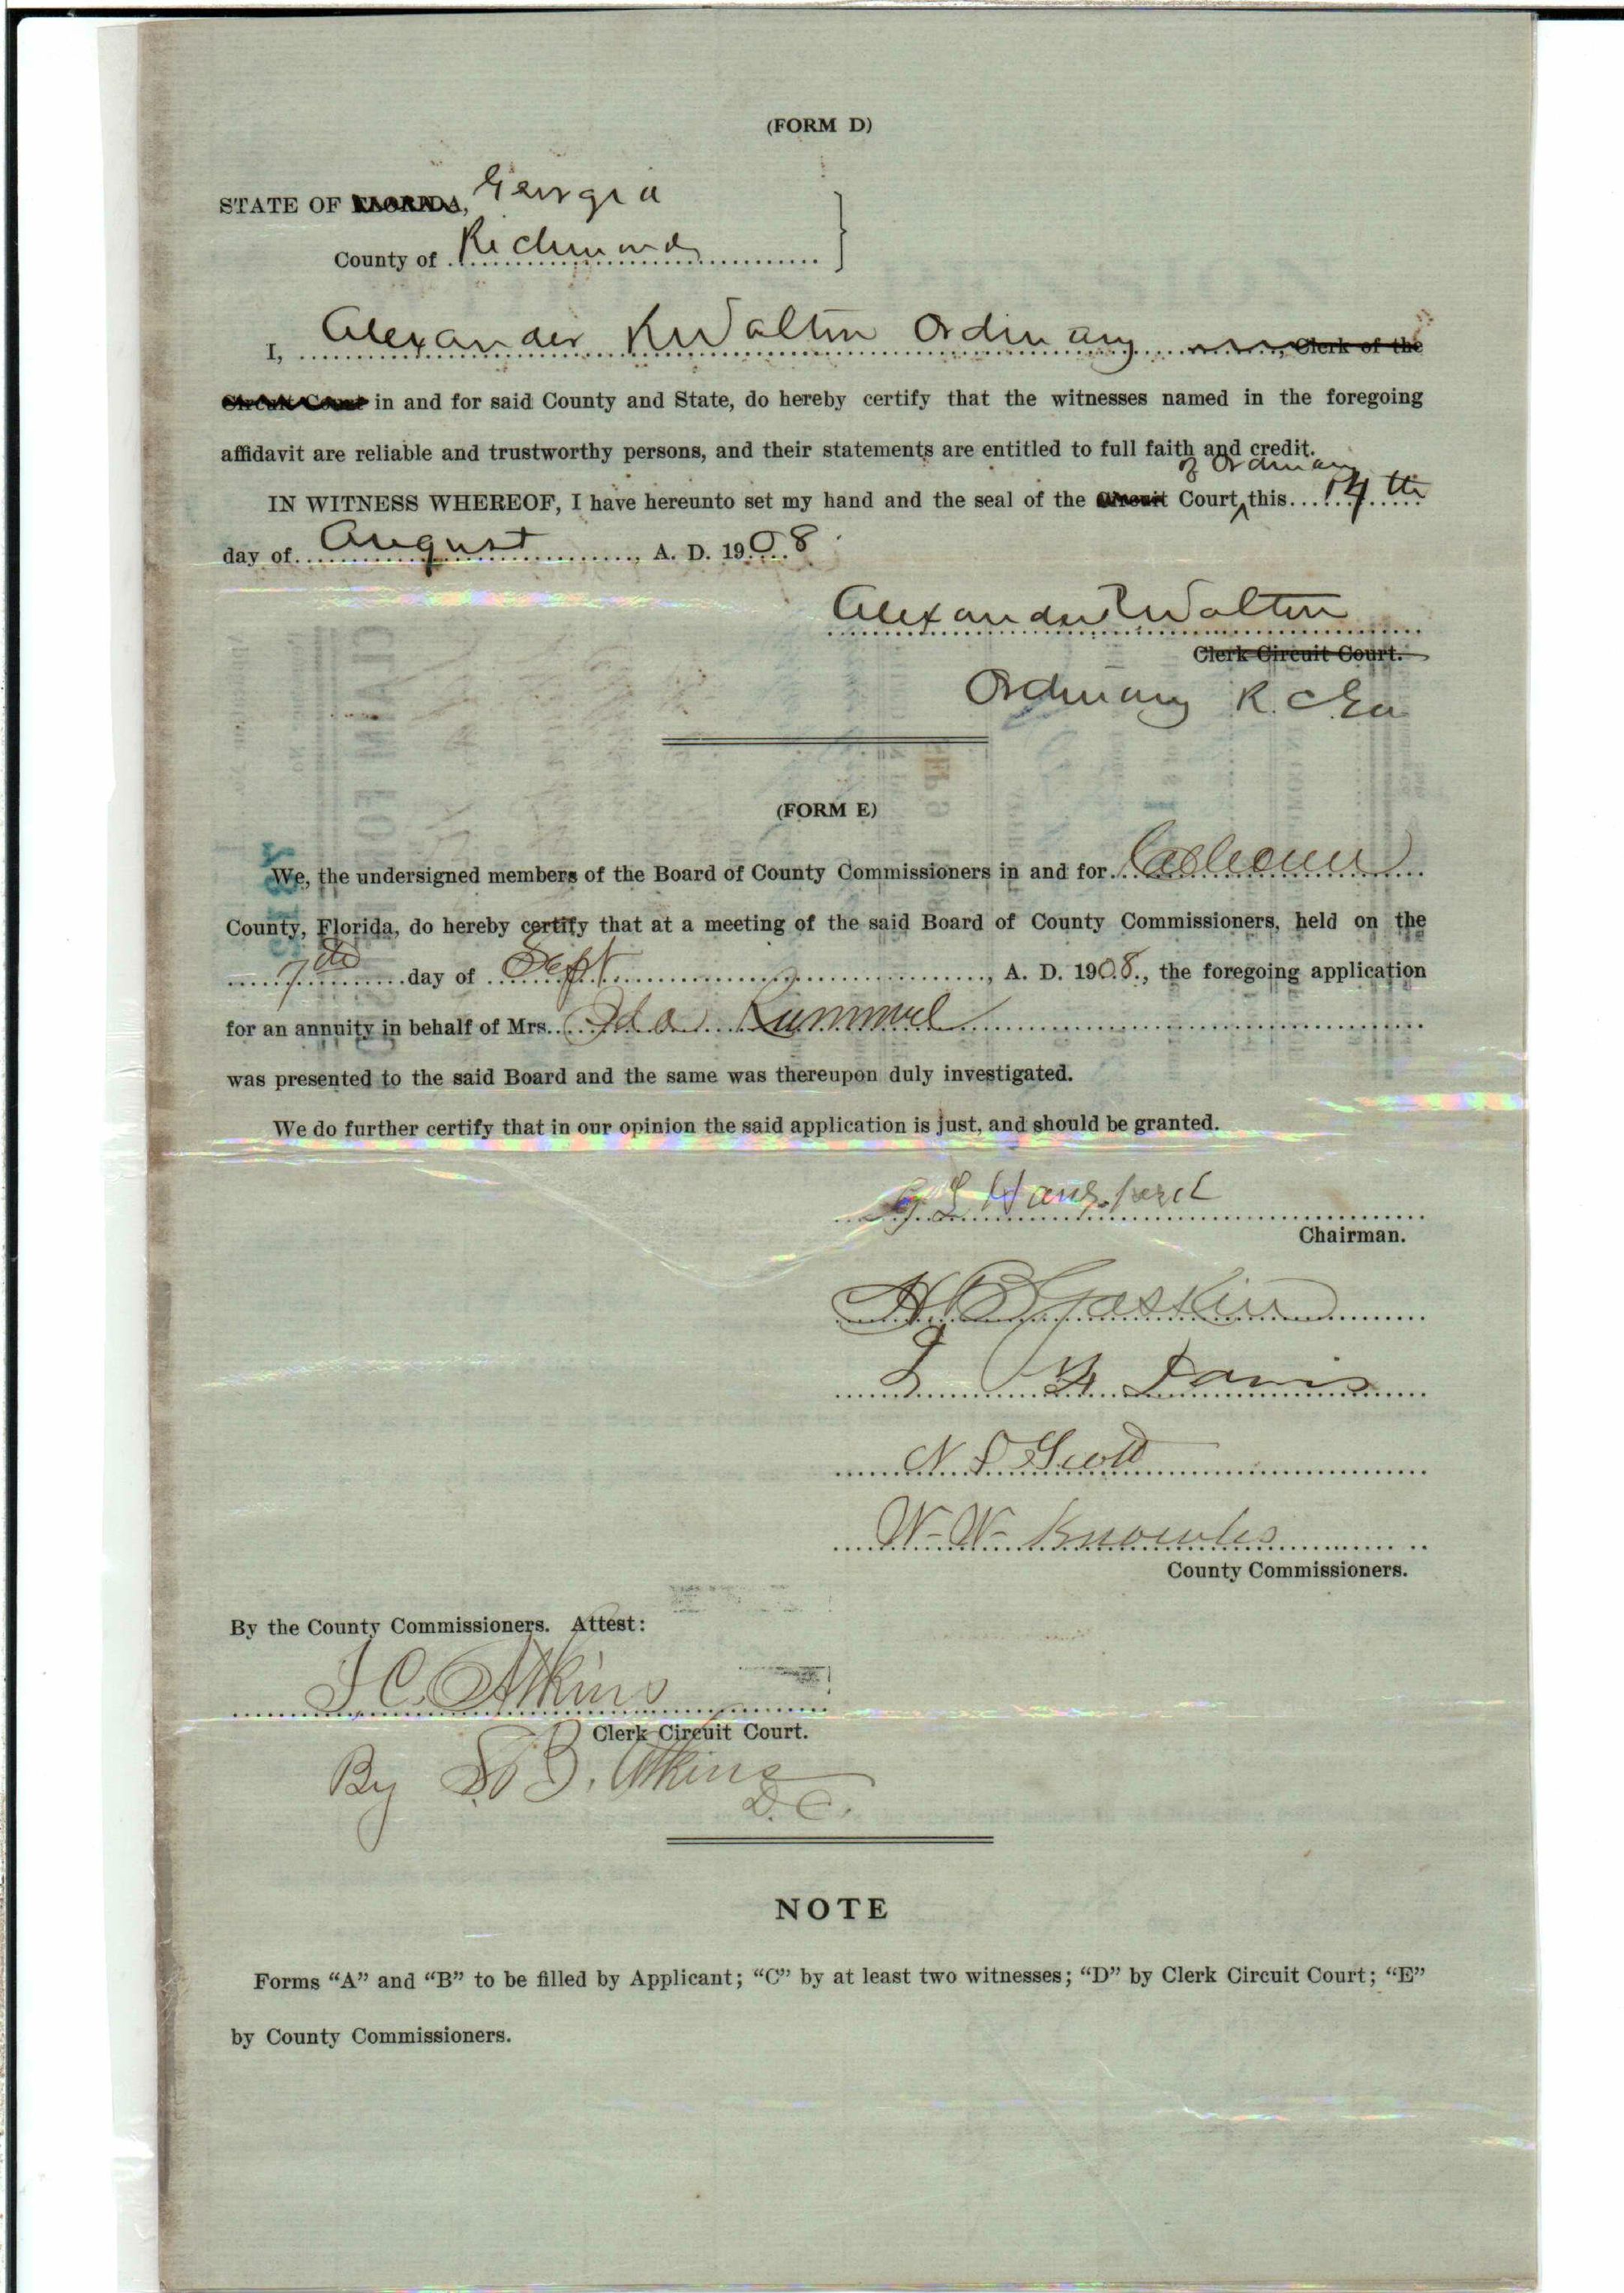 (FORM D)
STATE OF FLORIDA, Georgia
County of Richmond
I, Alexander R Walton Ordinary, Clerk of the
Circuit Court in and for said County and State, do hereby certify that the witnesses named in the foregoing
affidavit are reliable and trustworthy persons, and their statements are entitled to full faith and credit.
of Ordinary
IN WITNESS WHEREOF, I have hereunto set my hand and the seal of the Circuit Court, this 14th
day of August, A. D. 1908
Alexander R Walton
Clerk Circuit Court.
Ordinary R. C. Ga
(FORM E)
We, the undersigned members of the Board of County Commissioners in and for Calhoun
County, Florida, do hereby certify that at a meeting of the said Board of County Commissioners, held on the
7th day of Sept, A. D. 1908., the foregoing application
for an annuity in behalf of Mrs. Ida Rummel
was presented to the said Board and the same was thereupon duly investigated.
We do further certify that in our opinion the said application is just, and should be granted.
G L Hansford
Chairman.
H B Gaskin
Davis
N. S Scott
W. W. Knowles
County Commissioners.
By the County Commissioners. Attest:
J C. Atkins
Clerk Circuit Court.
By B. Atkins
D. C.
NOTE
Forms “A” and “B” to be filled by Applicant; “C” by at least two witnesses; “D” by Clerk Circuit Court; “E”
by County Commissioners.